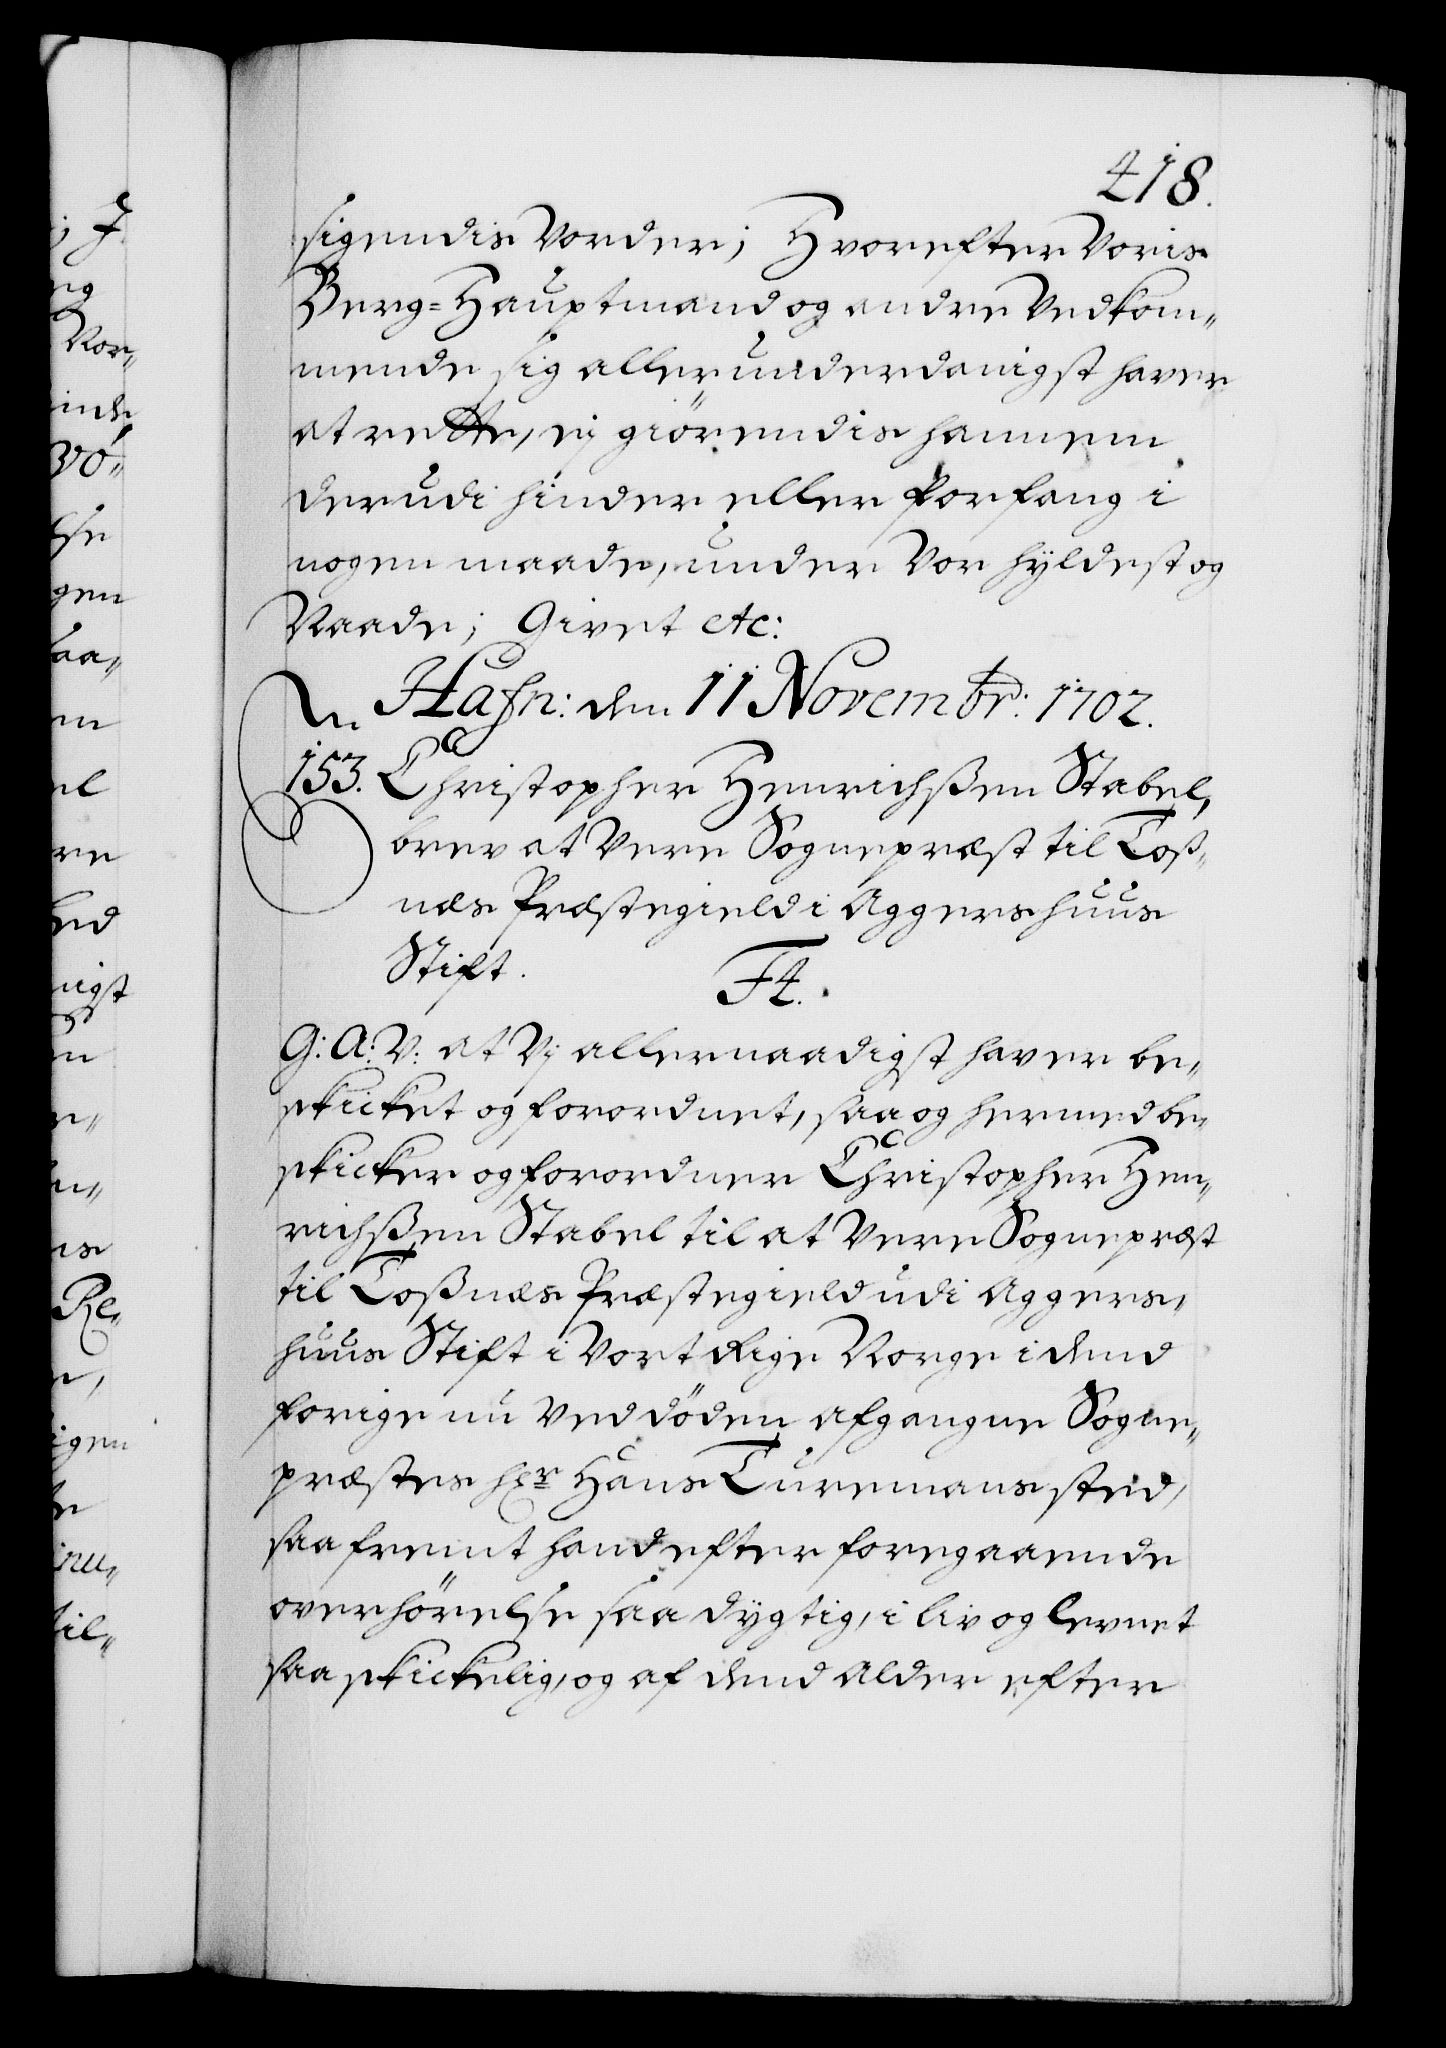 418.
sigendis Vorder; Hvorefter Voris
Berg=Hauptmand og andre Vedkom„
mende sig allerunderdanigst haver
at rette, ej giörendis hannem
derudi hinder eller Forfang i
nogen maade, under Vor hÿldest og
Naade; Givet etc:
Hafn: den 11 Novembr: 1702.
153. Christopher Henrichßen Stabel,
brev at Vere Sognepræst til Toß„
næs Præstegield i Aggershuus
Stift.
F4.
G: A: V: at Vj allernaadigst haver be„
skicket og forordnet, saa og hermed be„
skicker og forordner Christopher Hen„
richßen Stabel til at Vere Sognepræst
til Toßnæs Præstegield udi Aggers„
huus Stift i Vort Rige Norge i dend
forige nu Ved döden afgangne Sogne„
præstes hr Hans Turemans sted,
saafremt hand efter foregaaende
overhörelse saa dygtig, i liv og levnet
saa skickelig, og af dend Alder efter